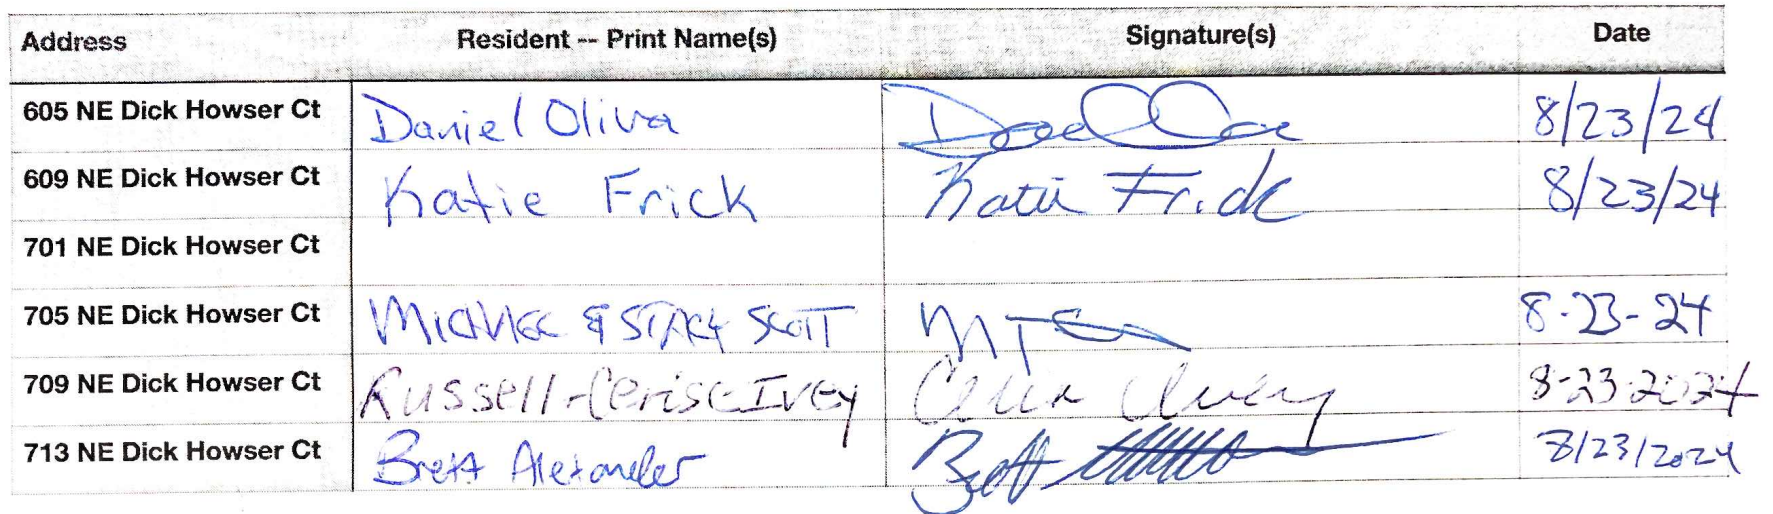 Address Resident -- Print Name(s) Signature(s) Date
605 NE Dick Howser Ct Daniel Oliva 8/23/24
609 NE Dick Howser Ct Katie Frick Katie Frick 8/23/24
701 NE Dick Howser Ct
705 NE Dick Howser Ct MICHAEL & STACY SCOTT 8-23-24
709 NE Dick Howser Ct Russell-Cerise Ivey 8-23-2024
713 NE Dick Howser Ct Brett Alexander Brett 8/23/2024